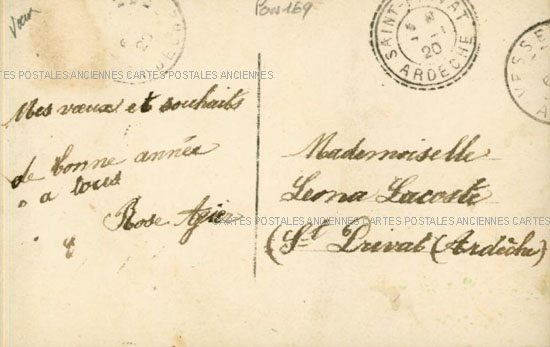 Voeux
Pons169
SAINT-PRIVAT
ARDECHE
20
VESSE
CARTES POSTALES ANCIENNES CARTES POSTALES ANCIENNES
Mes vœux et souhaits
de bonne année
a tous
Rose
CARTES POSTALES ANCIENNES CARTES POSTALES ANCIENNES CARTES
Mademoiselle
Leona Lacoste
(St Privat (Ardèche)